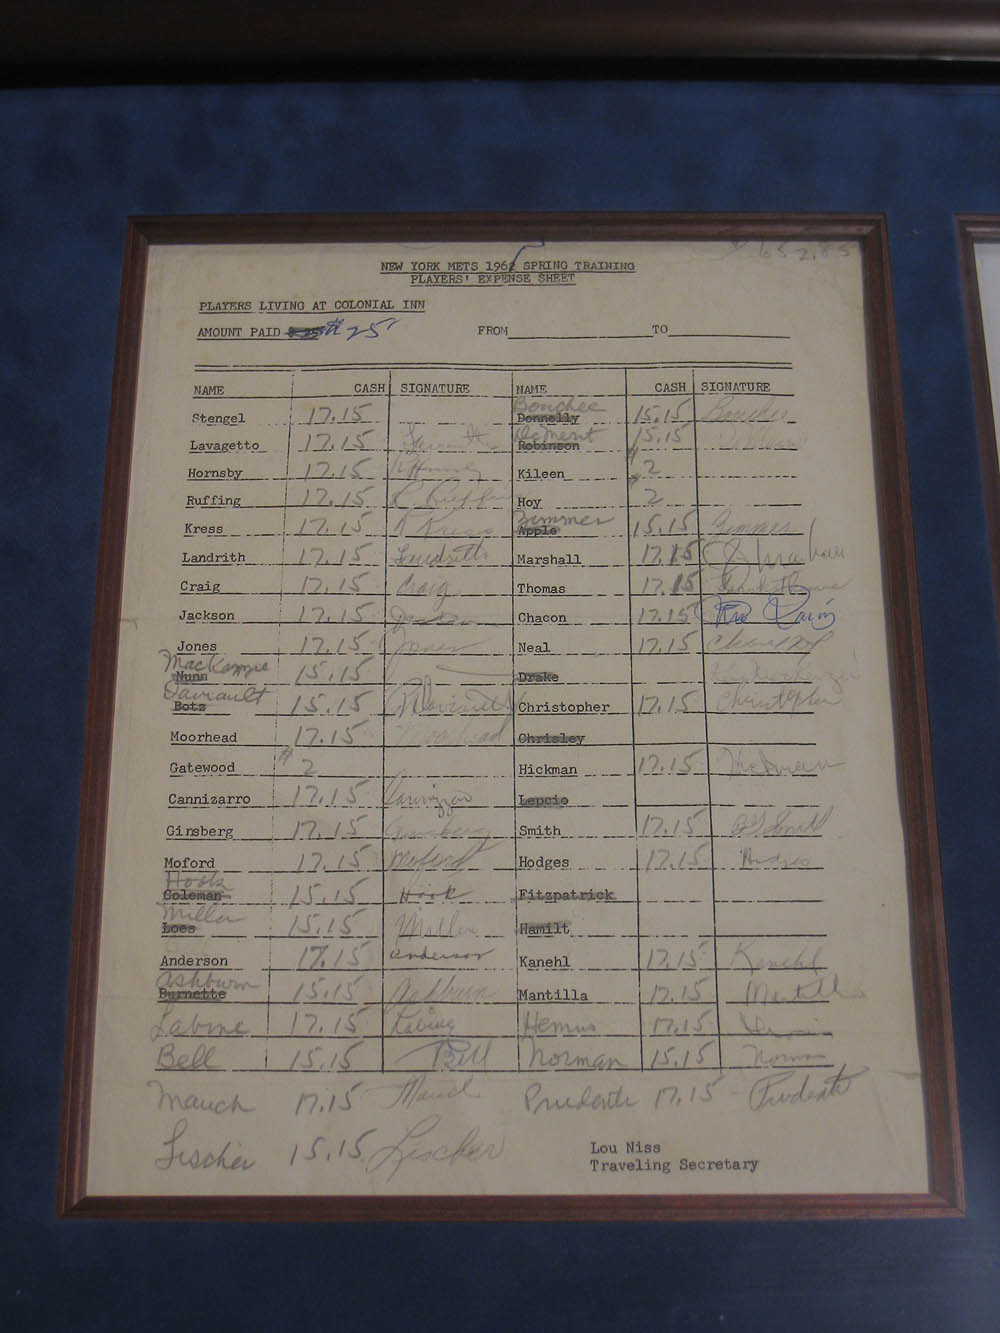 652.85
NEW YORK METS 1962 SPRING TRAINING
PLAYERS' EXPENSE SHEET
PLAYERS LIVING AT COLONIAL INN
AMOUNT PAID 25 FROM TO
NAME CASH SIGNATURE NAME CASH SIGNATURE
Bouchee
Stengel 17.15 Donnelly 15.15 Bouchee
DeMerit
Lavagetto 17.15 Lavagetto Robinson 15.15 DeMerit
Hornsby 17.15 R Hornsby Kileen #2
Ruffing 17.15 C Ruffing Hoy #2
Zimmer
Kress 17.15 R Kress Apple 15.15 Zimmer
Landrith 17.15 Landrith Marshall 17.15 J Marshall
Craig 17.15 Craig Thomas 17.15 Frank Thomas
Jackson 17.15 Jackson Chacon 17.15
Jones 17.15 Jones Neal 17.15 Charles Neal
MacKenzie
Nunn 15.15 Drake MacKenzie
Daviault
Botz 15.15 R Daviault Christopher 17.15 Christopher
Moorhead 17.15 Moorhead Chrisley
Gatewood #2 Hickman 17.15 Hickman
Cannizarro 17.15 Cannizzaro Lepcio
Ginsberg 17.15 Ginsberg Smith 17.15 Smith
Moford 17.15 Moford Hodges 17.15 Hodges
Hook
Coleman 15.15 Hook Fitzpatrick
Miller
Loes 15.15 Miller Hamilt
Anderson 17.15 Anderson Kanehl 17.15 Kanehl
Ashburn
Burnette 15.15 Ashburn Mantilla 17.15 Mantilla
Labine 17.15 Labine Hemus 17.15 Hemus
Bell 15.15 Bell Norman 15.15 Norman
Mauch 17.15 Mauch Prudente 17.15 Prudente
Fischer 15.15 Fischer
Lou Niss
Traveling Secretary